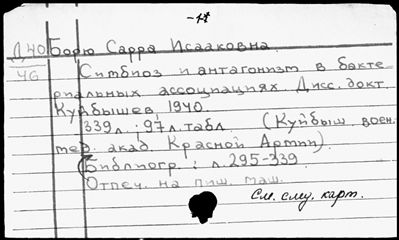 -1*
Д40 Борю Сарра Исааковна.
46 Симбиоз и антагонизм в бакте
риальных ассоциациях. Дисс. докт.
Куйбышев, 1940.
339 л.; 97 л. табл. (Куйбыш. воен.
мед. акад. Красной Армии).
(Библиогр.: л. 295-339
Отпеч. на пиш. маш.
См. след. карт.